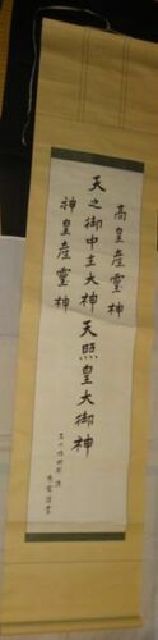 高皇産霊神
天之御中主大神天照皇大御神
神皇産霊神